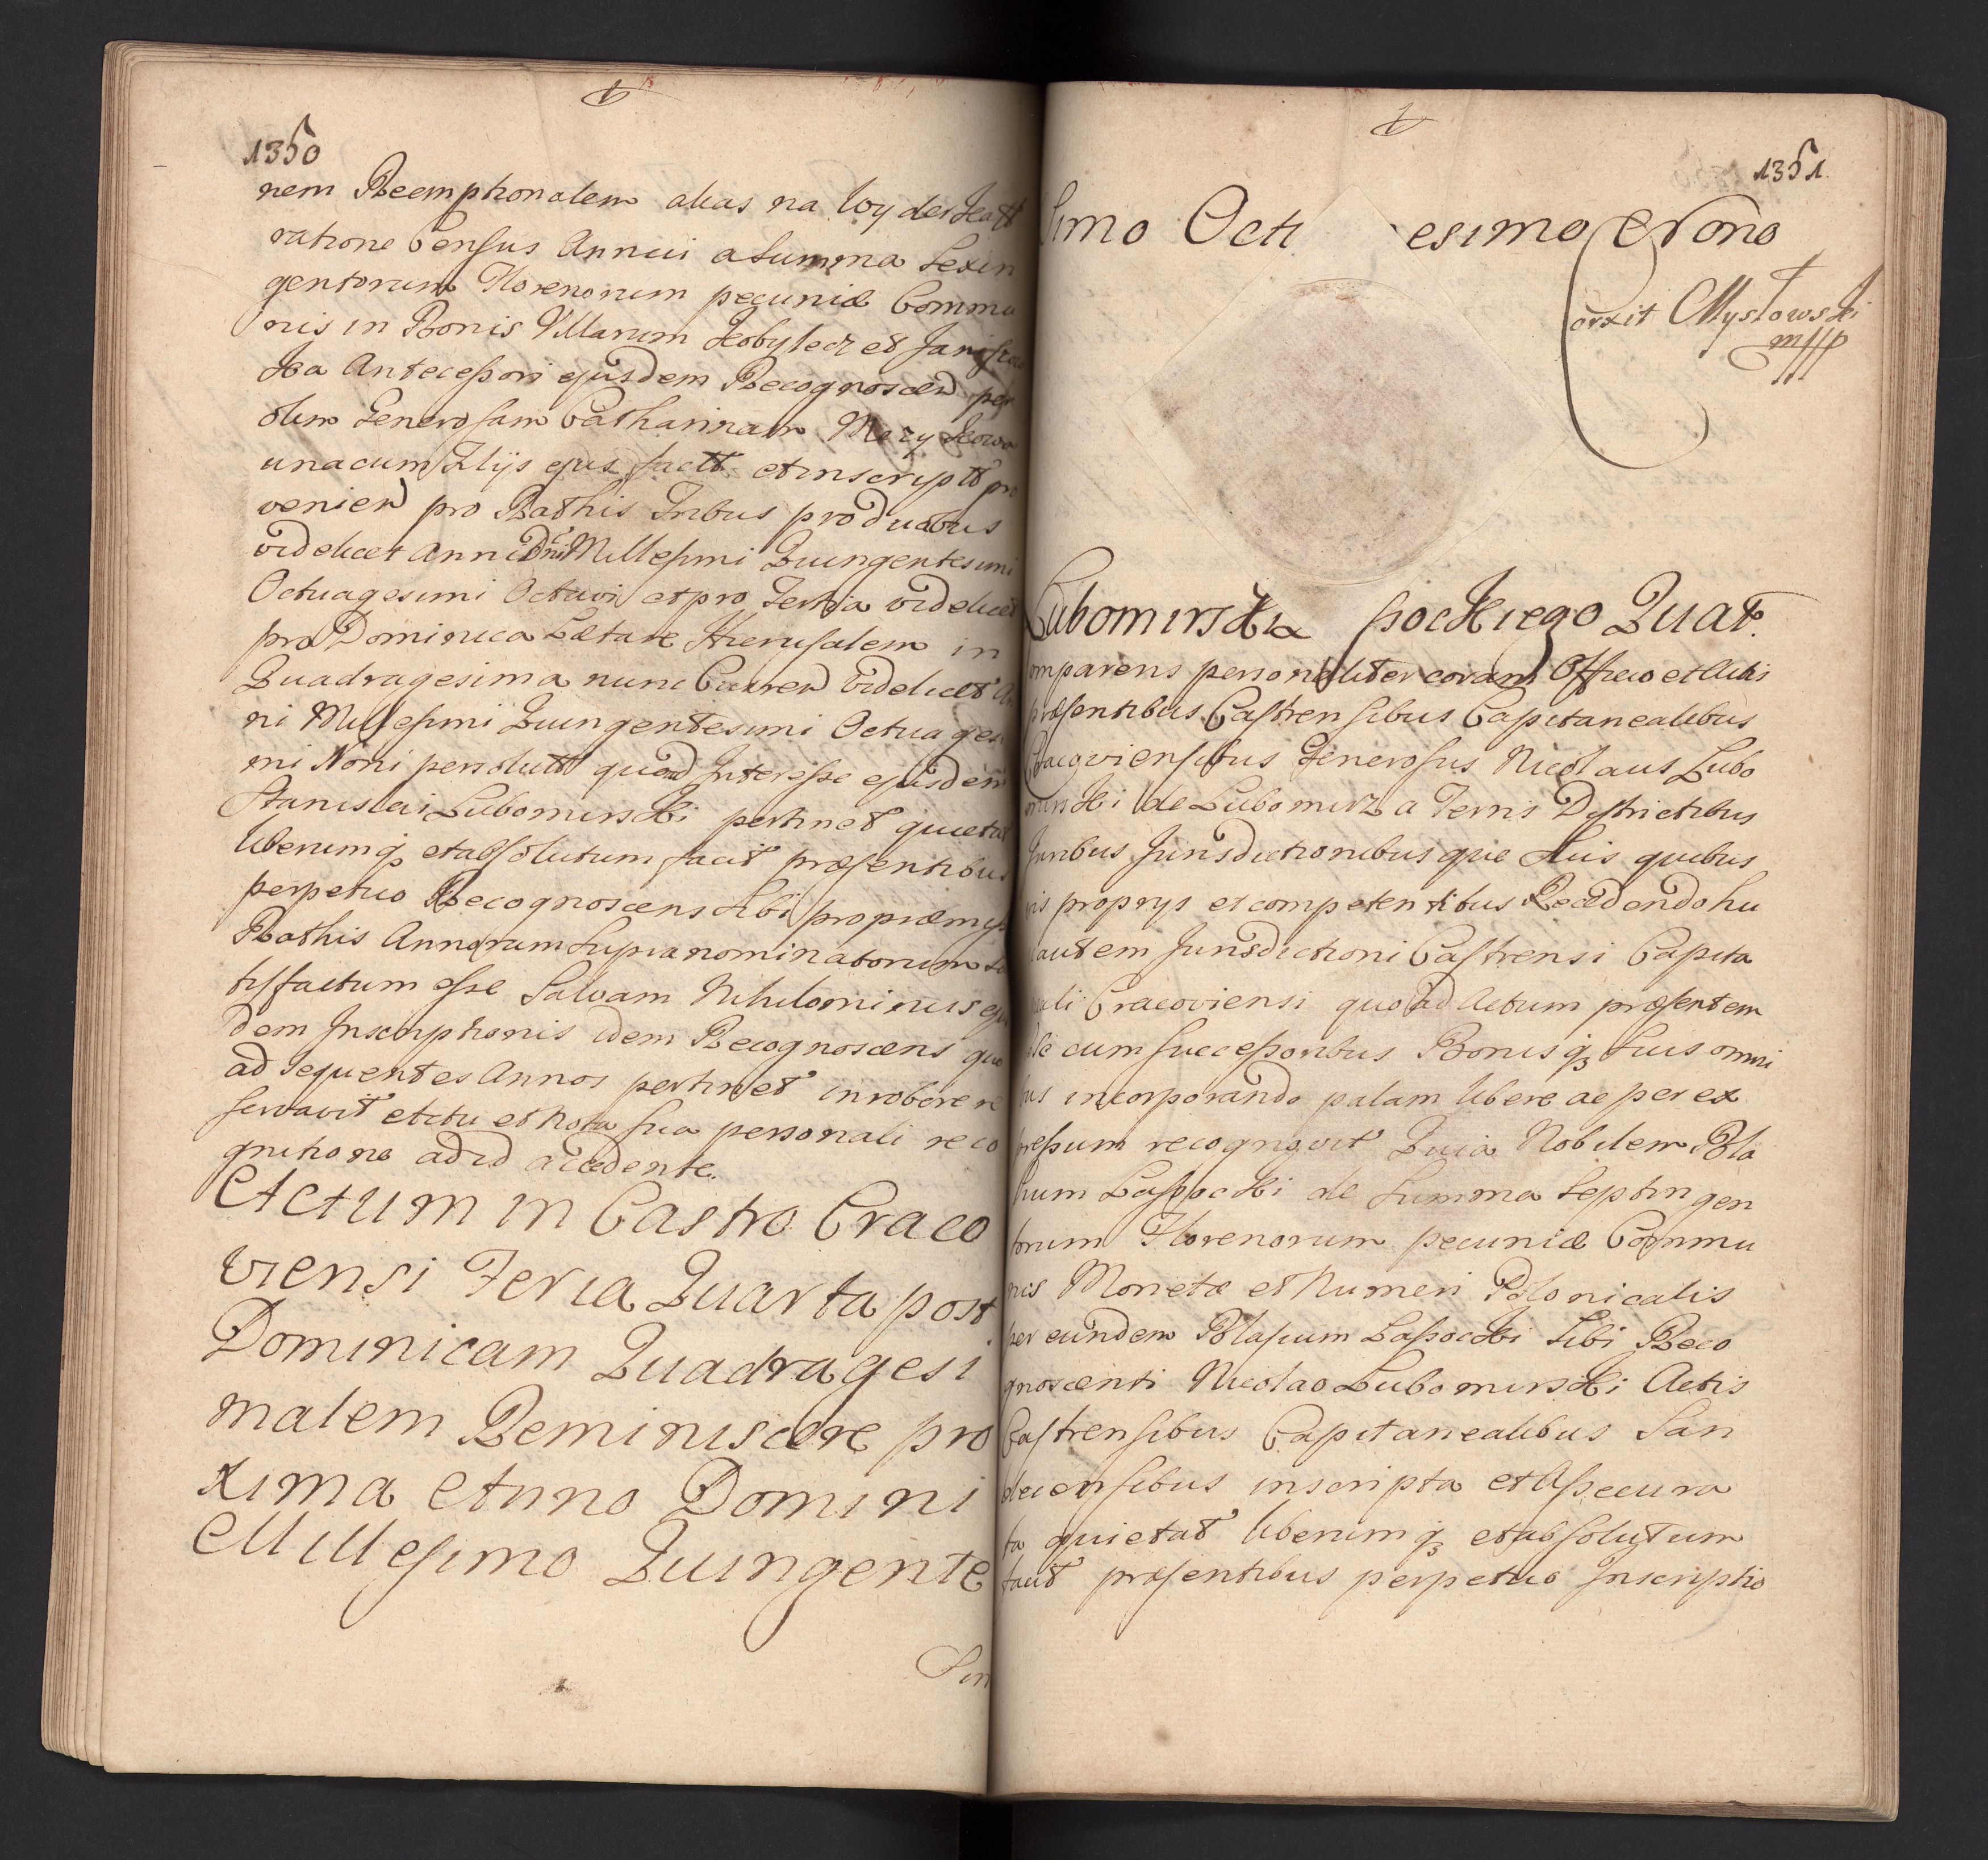 1350
nem Reemptionalem alias na wyderkatt
ratione Census Annui a Summa Sexin
gentorum Florenorum pecuniæ Commu
nis in Bonis Villarum Kobylecz et
ka Antecessori ejusdem Recognoscen per
olim Generosam Catharinam
unacum Filijs ejus factt et inscriptt pro
venien pro Rathis Tribus pro duabus
videlicet Anni Dni Millesimi Quingentesimi
Octuagesimi Octavi et pro Tertia videlicet
pro Dominica Lætare Hierusalem in
Quadragesima nunc Curren videlicet An
ni Millesimi Quingentesimi Octuagesi
mi Noni persolutt quoad Interesse ejusdem
Stanislai Lubomirski pertinet quietat
liberumq et absolutum facit præsentibus
perpetuo Recognoscens sibi pro præmiss
Rathis Annorum supra nominatorum sa
tisfactum esse Salvam Nihilominus ejus
dem Inscriptionis idem Recognoscens quo
ad sequentes Annos pertinet in robore re
servavit et ctu et Nota sua personali reco
gnitione ad id accedente.
Actum in Castro Craco
viensi Feria Quarta post
Dominicam Quadragesi
malem Reminiscere pro
xima Anno Domini
Millesimo Quingente
Sim
1351.
simo Octi esimo Nono
Correxit Mysłowski
mpp
Lubomirskiæ ssockiego Quat.
omparens personaliter coram Officio et Actis
præsentibus Castrensibus Capitanealibus
Cracoviensibus Generosus Nicolaus Lubo
mirski de Lubomirz a Terris Districtibus
Juribus Jurisdictionibusque suis quibus
vis proprys et competentibus Recedendo hu
autem Jurisdictioni Castrensi Capita
neali Cracoviensi quo ad Actum præsentem
se cum successoribus Bonisq suis omni
bus incorporando palam libere ac per ex
pressum recognovit Quia Nobilem Bla
sium Lassocki de Summa Septingen
torum Florenorum pecuniæ Commu
nis Monetæ et Numeri Polonicalis
per eundem Blasium Lassocki sibi Reco
gnoscenti Nicolao Lubomirski Actis
Castrensibus Capitanealibus San
decensibus inscripta et Assecura
ta quietat liberumq et absolutum
facit præsentibus perpetuo Inscriptio